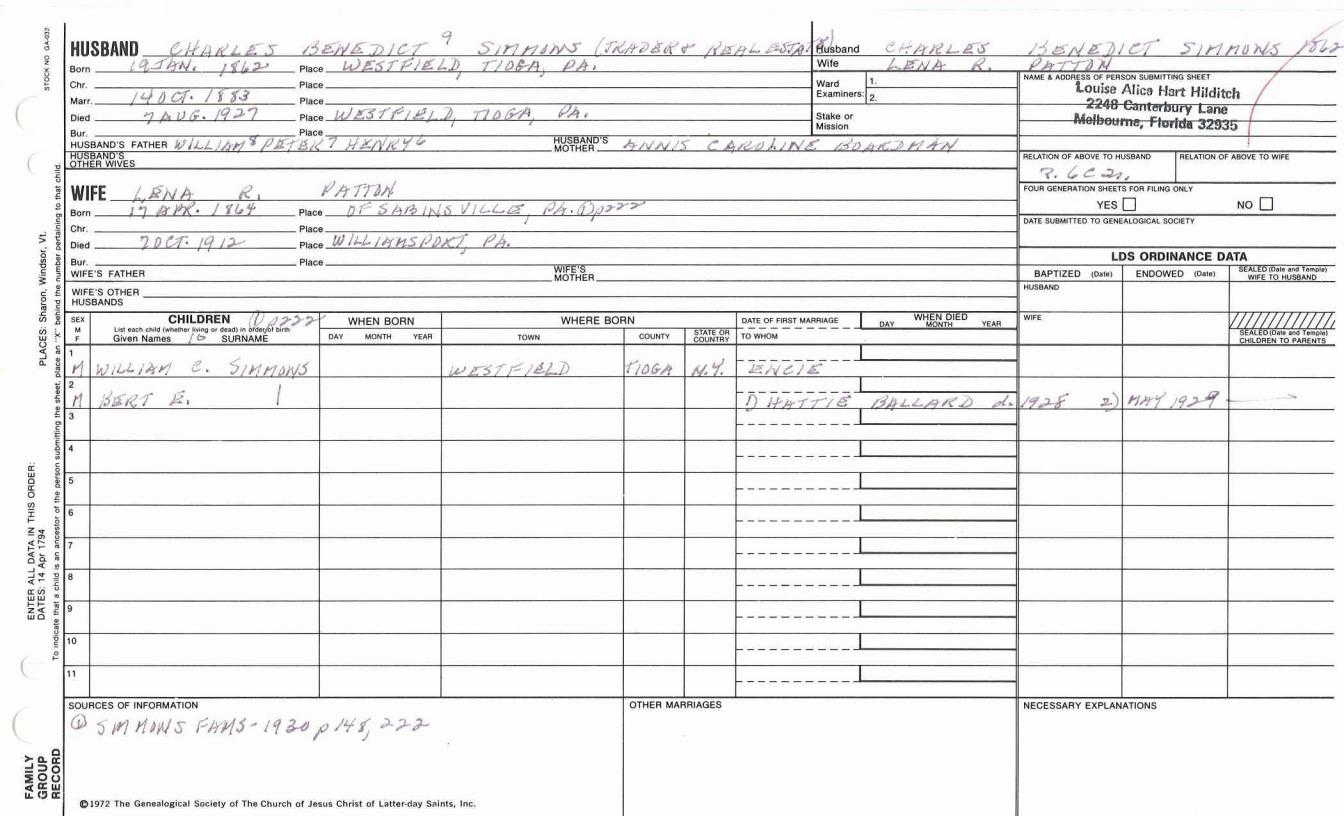 STOCK NO GA-032
HUSBAND CHARLES BENEDICT 9 SIMMONS (TRADER & REAL ESTATE)
Born 19 JAN. 1862 Place WESTFIELD, TIOGA, PA.
Chr. Place
Marr. 14 OCT. 1883 Place
Died 7 AUG. 1927 Place WESTFIELD, TIOGA, PA.
Bur. Place
HUSBAND'S FATHER WILLIAM 8 PETER 7 HENRY 6 HUSBAND'S MOTHER ANNIS CAROLINE BOARDMAN
HUSBAND'S OTHER WIVES
Husband CHARLES BENEDICT SIMMONS 1862
Wife LENA R. PATTON
Ward Examiners: 1.
2.
Stake or Mission
NAME & ADDRESS OF PERSON SUBMITTING SHEET
Louise Alice Hart Hilditch
2248 Canterbury Lane
Melbourne, Florida 32935
RELATION OF ABOVE TO HUSBAND RELATION OF ABOVE TO WIFE
6C
FOUR GENERATION SHEETS FOR FILING ONLY
YES NO
DATE SUBMITTED TO GENEALOGICAL SOCIETY
WIFE LENA R. PATTON
Born 17 APR. 1864 Place OF SABINSVILLE, PA. ① p222
Chr. Place
Died 7 OCT. 1912 Place WILLIAMSPORT, PA.
Bur. Place
WIFE'S FATHER WIFE'S MOTHER
WIFE'S OTHER HUSBANDS
LDS ORDINANCE DATA
BAPTIZED (Date) ENDOWED (Date) SEALED (Date and Temple) WIFE TO HUSBAND
HUSBAND
WIFE
SEALED (Date and Temple) CHILDREN TO PARENTS
SEX M F CHILDREN ① p222 WHEN BORN WHERE BORN DATE OF FIRST MARRIAGE WHEN DIED
List each child (whether living or dead) in order of birth
Given Names 10 SURNAME DAY MONTH YEAR TOWN COUNTY STATE OR COUNTRY TO WHOM DAY MONTH YEAR
1
M WILLIAM C. SIMMONS WESTFIELD TIOGA N.Y. ENCIE
2
M BERT E. | 1) HATTIE BALLARD d. 1928 2) MAY 1929
3
4
5
6
7
8
9
10
11
SOURCES OF INFORMATION
① SIMMONS FAMS-1930 p 148, 222
OTHER MARRIAGES
NECESSARY EXPLANATIONS
©1972 The Genealogical Society of The Church of Jesus Christ of Latter-day Saints, Inc.
FAMILY
GROUP
RECORD
ENTER ALL DATA IN THIS ORDER:
DATES: 14 Apr 1794 PLACES: Sharon, Windsor, Vt.
To indicate that a child is an ancestor of the person submitting the sheet, place an "X" behind the number pertaining to that child.